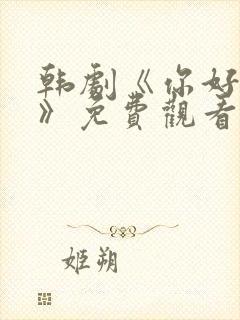 韩劇《你好
》免費觀看
姬朔